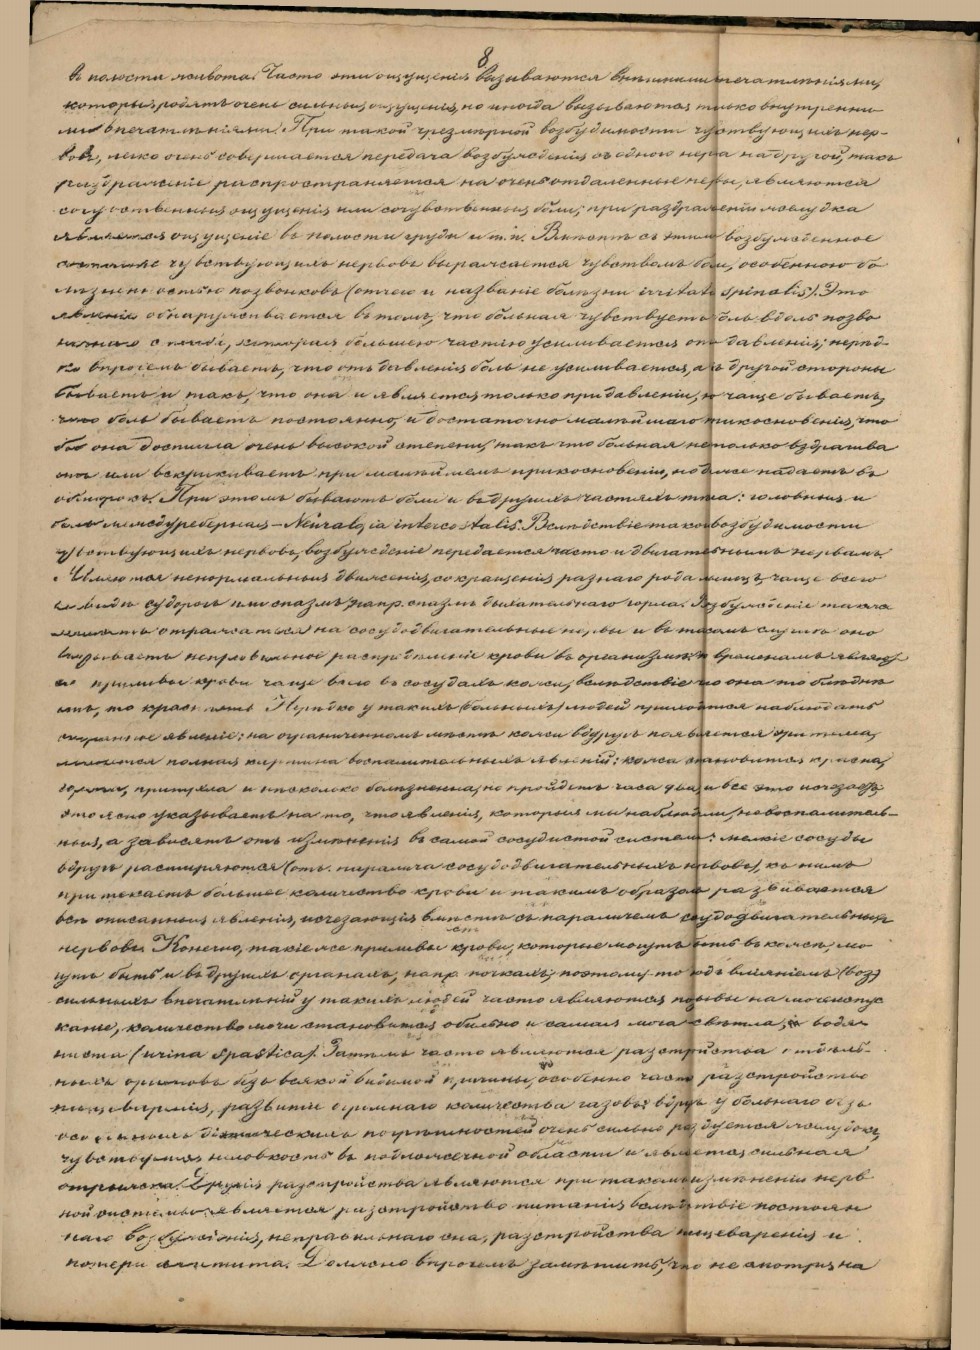 8
въ полости живота. Часто эти ощущенія вызываются внѣшними впечатлѣніями,
которыя родятъ очень сильныя ощущенія, но иногда вызываются только внутренни-
ми впечатлѣніями. При такой чрезмѣрной возбудимости чувствующихъ нер-
вовъ, легко очень совершается передача возбужденія съ одного нерва на другой, такъ
раздраженіе распространяется на очень отдаленные нервы, являются
сочувственныя ощущенія или сочувственныя боли; при раздраженіи желудка
является ощущеніе въ полости груди и т. п. Вмѣстѣ съ этимъ возбужденное
состояніе чувствующихъ нервовъ выражается чувствомъ боли, особенною бо
лѣзненностью позвонковъ (отчего и названіе болѣзни irritatio spinalis). Это
явленіе обнаруживается въ томъ, что больная чувствуетъ боль вдоль позво
ночнаго столба, которая большею частію усиливается отъ давленія; нерѣд-
ко впрочемъ бываетъ, что отъ давленія боль не усиливается, а съ другой стороны
бываетъ и такъ, что она и является только при давленіи, но чаще бываетъ,
что боль бываетъ постоянно, и достаточно малѣйшаго прикосновенія, что
бы она достигла очень высокой степени, такъ что больная не только вздрагива
етъ или вскрикиваетъ при малѣйшемъ прикосновеніи, но даже падаетъ въ
обморокъ. При этомъ бываютъ боли и въ другихъ частяхъ тѣла: головныя и
боль междуреберная – Neuralgia intercostalis. Вслѣдствіе такой возбудимости
чувствующихъ нервовъ, возбужденіе передается часто и двигательнымъ нервамъ.
Являются ненормальныя движенія, сокращенія разнаго рода мышцъ, чаще всего
въ видѣ судорогъ или спазмъ, напр. спазмъ дыхательнаго горла. Возбужденіе также
можетъ отражаться на сосудодвигательные нервы и въ такомъ случаѣ оно
вызываетъ неправильное распредѣленіе крови въ организмѣ: временамъ являют
ся приливы крови чаще всего въ сосудахъ кожи, вслѣдствіе чего она то блѣднѣ
етъ, то краснѣетъ. Нерѣдко у такихъ (больныхъ) людей приходится наблюдать
странное явленіе: на ограниченномъ мѣстѣ кожи вдругъ появляется эритема,
является полная картина воспалительныхъ явленій: кожа становится красна,
горяча, припухла и нѣсколько болѣзненна, но пройдетъ часа два, и все это исчезаетъ,
это ясно указываетъ на то, что явленія, которыя мы наблюдали, не воспалитель-
ныя, а зависятъ отъ измѣненія въ самой сосудистой системѣ: мелкіе сосуды
вдругъ расширяются (отъ паралича сосудодвигательныхъ нервовъ), къ нимъ
притекаетъ большее количество крови и такимъ образомъ развивается
всѣ описанныя явленія, исчезающія вмѣстѣ съ параличемъ сосудодвигательныхъ
нервовъ. Конечно, такіе же приливы крови, которые могутъ быть въ кожѣ, мо
гутъ быть и въ другихъ органахъ, напр. почкахъ; поэтому-то подъ вліяніемъ (воз)
сильныхъ впечатлѣній у такихъ людей часто являются позывы на мочеиспус
каніе, количество мочи становится обильно и самая моча свѣтла, водя-
ниста (urina spastica). Затѣмъ часто являются разстройства отдѣль-
ныхъ органовъ безъ всякой видимой причины, особенно часто разстройство
пищеваренія, развитіе огромнаго количества газовъ: вдругъ у больнаго безъ
особенныхъ діэтическихъ погрѣшностей очень сильно раздуется желудокъ,
чувствуется неловкость въ подложечной области и является сильная
отрыжка. Другія разстройства являются при такомъ измѣненіи нерв
ной системы: является разстройство питанія вслѣдствіе постоян
наго возбужденія, неправильнаго сна, разстройства пищеваренія и
потери аппетита. Должно впрочемъ замѣтить, что не смотря на